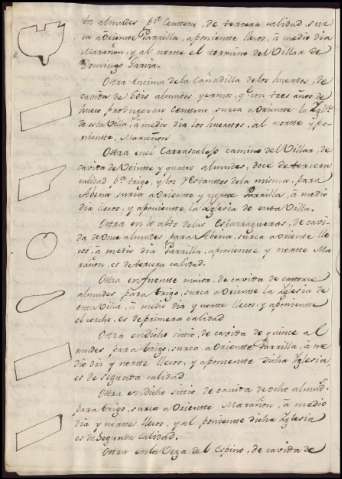 tos almudes pª Centeno, de tercera calidad, surca
a Oriente Parrilla, a poniente lleco, â medio dia
Marañon, y al norte el termino del Villar de
Domingo Garcia.
Ottra encima de la Cañadilla de los huertos, de
cavida de seis almudes, yerma, con tres años de
hueco produze un Centeno, surca a Oriente
de esta Villa, â medio dia los huertos, al norte y po-
niente, Marañon.
Ottra en el Carrascalejo camino del Villar, de
cavida de Veinte y quatro almudes, doce de tercera
calidad pª trigo, y los restantes de la misma, para
Abena surca a Oriente y norte Parrilla, â medio
dia lleco, y a poniente, la Iglesia de esta Villa.
Ottra en lo alto de las Escaraqueras, de cavi-
da de doze almudes para Abena, surca a Oriente lle-
co, â medio dia Parrilla, a poniente y norte Ma-
rañon, es de tercera calidad.
Ottra en fuente de cavida de catorce
almudes para trigo, surca a Oriente la Iglesia de
esta Villa, â medio dia y norte lleco, y a poniente
el es de primera calidad
Ottra en dicho sitio, de cavida de quince al-
mudes para trigo, surca a Oriente Parrilla, â me-
dio dia y norte lleco, y a poniente dicha Iglesia
es de segunda calidad.
Ottra en dicho sitio de cavida de ocho almudes
para trigo, surca a Oriente Marañon, â medio
dia y norte lleco, y al poniente dicha Iglesia
es de Segunda calidad.
Ottra en la Vega del Espino, de cavida de